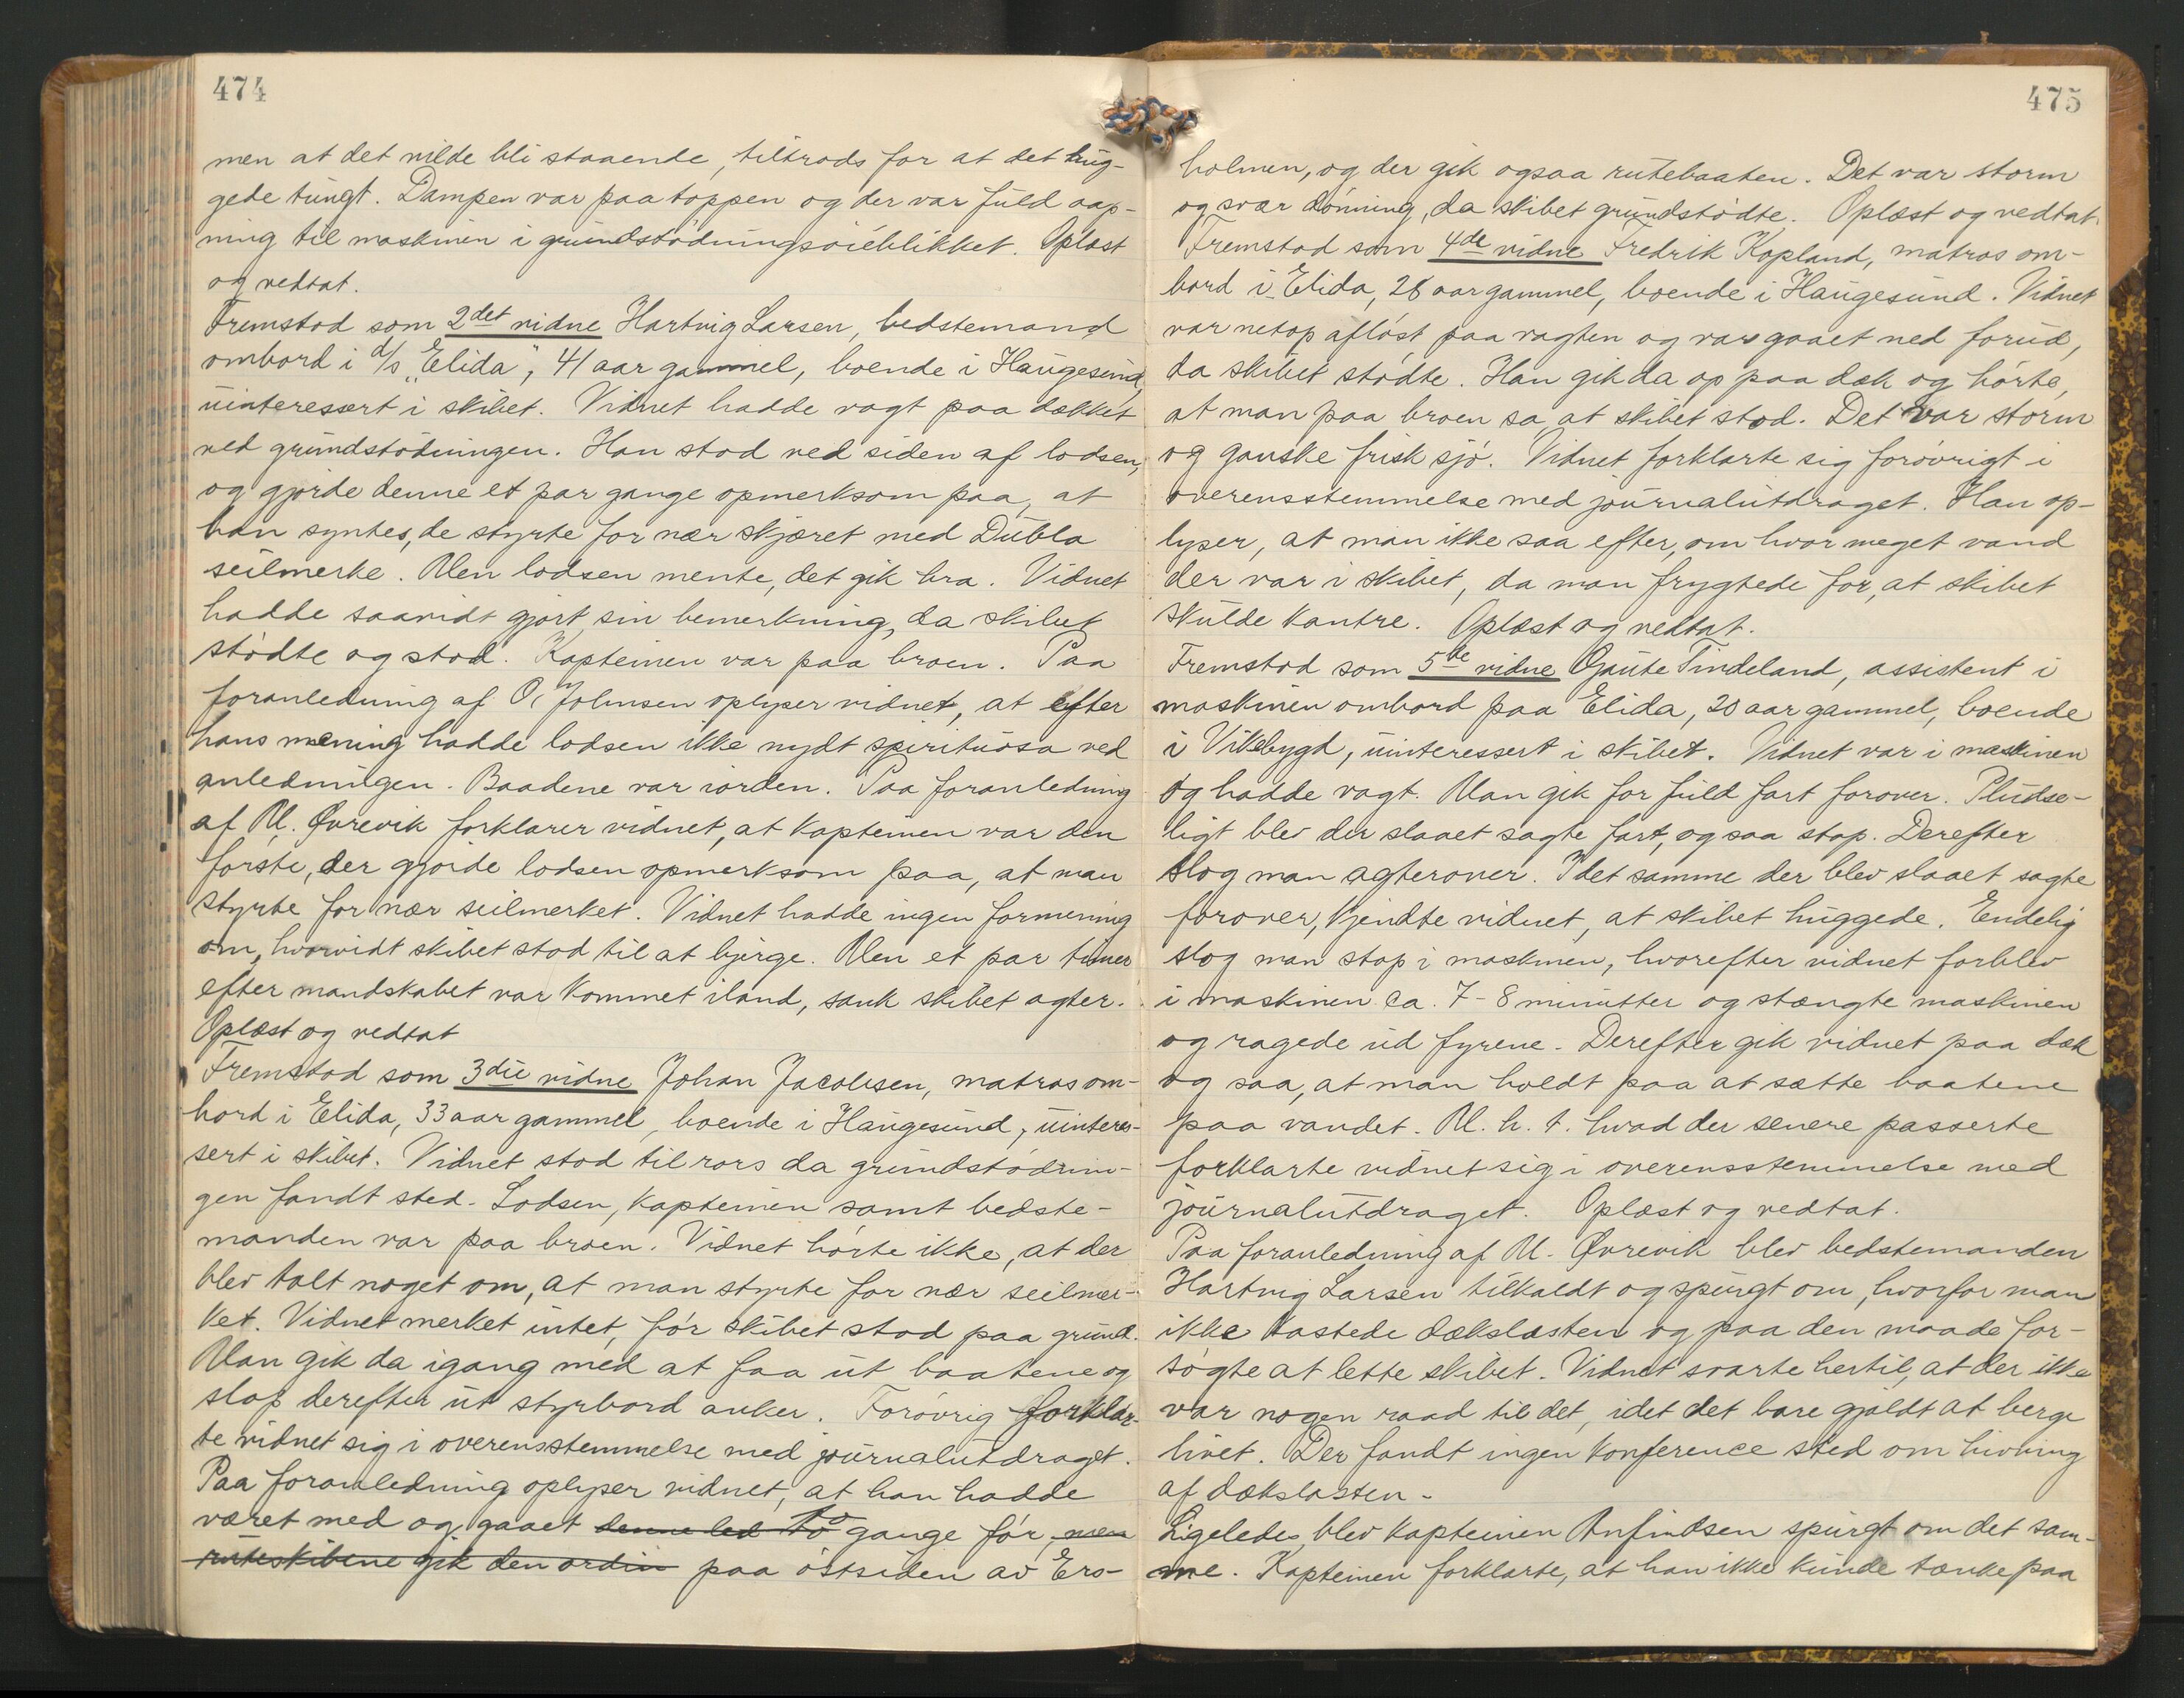 474
men at det vilde bli staaende, tiltrods for at det hug-
gede tungt. Dampen var paa toppen og der var fuld aap-
ning til maskinen i grundstødningsøieblikket. Oplæst
og vedtat.
Fremstod som 2det vidne Hartvig Larsen, bedstemand
ombord i d/s "Elida", 41 aar gammel, boende i Haugesund,
uinteressert i skibet. Vidnet hadde vagt paa dækket
ved grundstødningen. Han stod ved siden af lodsen,
og gjorde denne et par gange opmerksom paa, at
han syntes, de styrte for nær skjæret med Dubla
seilmerke. Men lodsen mente, det gik bra. Vidnet
hadde saavidt gjort sin bemerkning, da skibet
stødte og stod. Kapteinen var paa broen. Paa
foranledning af O. Johnsen oplyser vidnet, at efter
hans mening hadde lodsen ikke nydt spirituosa ved
anledningen. Baadene var iorden. Paa foranledning
af M. Øvrevik forklarer vidnet, at kapteinen var den
første, der gjorde lodsen opmerksom paa, at man
styrte for nær seilmerket. Vidnet hadde ingen formening
om, hvorvidt skibet stod til at bjerge. Men et par timer
efter mandskabet var kommet iland, sank skibet agter.
Oplæst og vedtat
Fremstod som 3die vidne Johan Jacobsen, matros om-
bord i Elida, 33 aar gammel, boende i Haugesund, uinteres-
sert i skibet. Vidnet stod til rors da grundstødnin-
gen fandt sted. Lodsen, kapteinen samt bedste-
manden var paa broen. Vidnet hørte ikke, at der
blev talt noget om, at man styrte for nær seilmer-
ket. Vidnet merket intet, før skibet stod paa grund.
Man gik da igang med at faa ut baatene og
slap derefter ut styrbord anker. Forøvrig forklar-
te vidnet sig i overensstemmelse med journalutdraget.
Paa foranledning oplyser vidnet, at han hadde
været med og gaaet denne led to gange før, men
ruteskibene gik den ordin paa østsiden av Ers-
475
holmen, og der gik ogsaa rutebaaten. Det var storm
og svær dønning, da skibet grundstødte. Oplæst og vedtat.
Fremstod som 4de vidne Fredrik Kopland, matros om-
bord i Elida, 26 aar gammel, boende i Haugesund. Vidnet
var netop afløst paa vagten og var gaaet ned forud,
da skibet stødte. Han gik da op paa dæk og hørte,
at man paa broen sa, at skibet stod. Det var storm
og ganske frisk sjø. Vidnet forklarte sig forøvrigt i
overensstemmelse med journalutdraget. Han op-
lyser, at man ikke saa efter, om hvor meget vand
der var i skibet, da man frygtede for, at skibet
skulde kantre. Oplæst og vedtat.
Fremstod som 5te vidne Gaute Tindeland, assistent i
maskinen ombord paa Elida, 20 aar gammel, boende
i Vikebygd, uinteressert i skibet. Vidnet var i maskinen
og hadde vagt. Man gik for fuld fart forover. Pludse-
ligt blev der slaaet sagte fart, og saa stop. Derefter
slog man agterover. I det samme der blev slaaet sagte
forover, kjendte vidnet, at skibet huggede. Endelig
slog man stop i maskinen, hvorefter vidnet forblev
i maskinen ca. 7-8 minutter og stængte maskinen
og ragede ud fyrene. Derefter gik vidnet paa dæk
og saa, at man holdt paa at sætte baatene
paa vandet. M. h. t. hvad der senere passerte
forklarte vidnet sig i overensstemmelse med
journalutdraget. Oplæst og vedtat.
Paa foranledning af M. Øvrevik blev bedstemanden
Hartvig Larsen tilkaldt og spurgt om, hvorfor man
ikke kastede dækslasten og paa den maade for-
søgte at lette skibet. Vidnet svarte hertil, at der ikke
var nogen raad til det, idet det bare gjaldt at berge
livet. Der fandt ingen konference sted om hivning
af dækslasten.
Ligeledes blev kapteinen Anfindsen spurgt om det sam-
me. Kapteinen forklarte, at han ikke kunde tænke paa